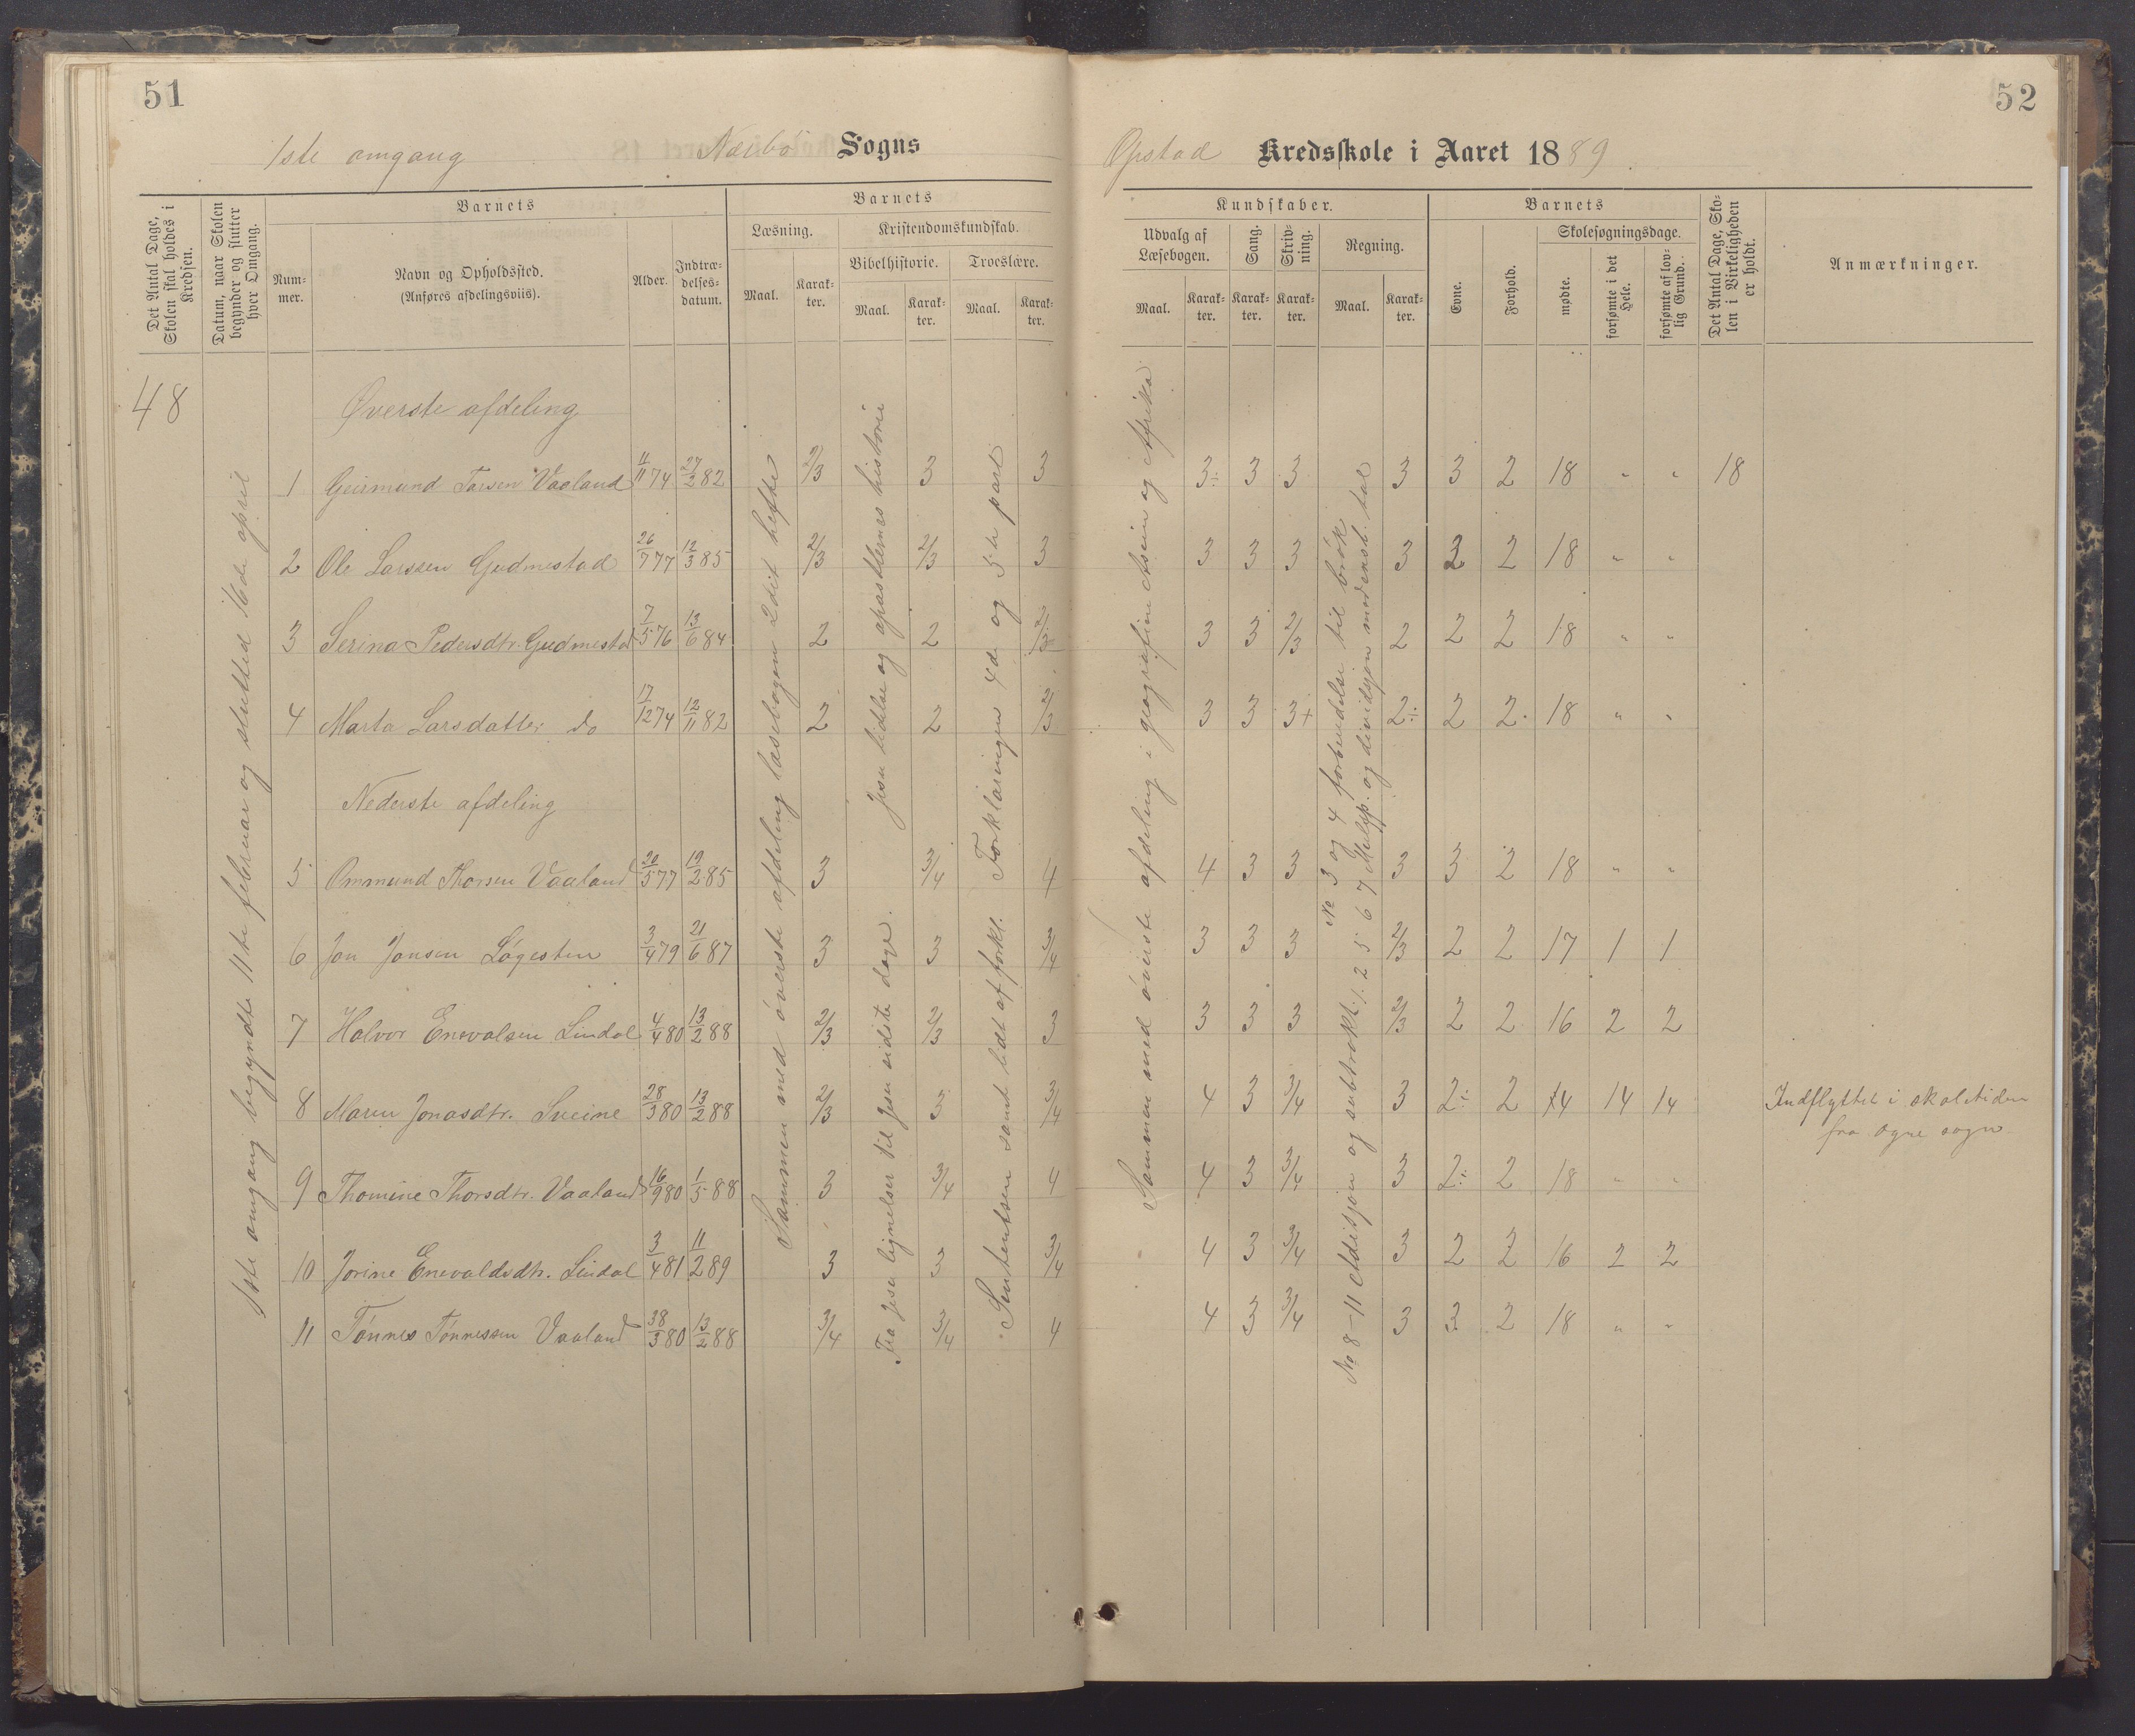 51
52
1ste omgang Nærbö Sogns
Opstad Kredsskole i Aaret 1889
Det Antal Dage, Skolen skal holdes i Kredsen.
Datum, naar Skolen begynder og slutter hver Omgang.
Barnets
Num-mer.
Navn og Opholdssted.
(Anføres afdelingsviis).
Alder.
Indtræ-delses-datum.
Barnets
Læsning.
Maal.
Karak-ter.
Kristendomskundskab.
Bibelhistorie.
Maal.
Karak-ter.
Troeslære.
Maal.
Karak-ter.
Kundskaber.
Udvalg af Læsebogen.
Maal.
Karak-ter.
Sang.
Karak-ter.
Skriv-ning.
Karak-ter.
Regning.
Maal.
Karak-ter.
Barnets
Evne.
Forhold.
Skolesøgningsdage.
mødte.
forsømte i det Hele.
forsømte af lov-lig Grund.
Det Antal Dage, Sko-len i Virkeligheden er holdt.
Anmærkninger.
48
1ste omgang begyndte 11te februar og slutted 16de april
Øverste afdeling
1 Geirmund Torsen Vaaland 11/11 74 27/2 82 2/3 3 3 3÷ 3 3 3 3 2 18 " " 18
2 Ole Larssen Gudmestad 26/7 77 12/3 85 2/3 2/3 3 3 3 3 3 3 2 18 " "
3 Serina Pedersdtr. Gudmestad 7/5 76 13/6 84 2 2 2/3 3 3 2/3 2 2 2 18 " "
4 Marta Larsdatter do 17/12 74 12/11 82 2 2 2/3 3 3 3+ 2÷ 2 2 18 " "
Nederste afdeling
5 Ommund Thorsen Vaaland 20/5 77 19/2 85 3 3/4 4 4 3 3 3 3 2 18 " "
6 Jon Jonsen Løgesten 3/4 79 21/6 87 3 3 3/4 3 3 3 2/3 2 2 17 1 1
7 Halvor Enevalsen Lindal 4/4 80 13/2 88 2/3 2/3 3 3 3 3 2/3 2 2 16 2 2
8 Maren Jonasdtr. Sveine 28/3 80 13/2 88 2/3 3 3/4 4 3 3/4 3 2÷ 2 14 14 14 Indflyttet i skoletiden
fra Ogne sogn
9 Thomine Thorsdtr. Vaaland 16/9 80 1/5 88 3 3/4 4 4 3 3/4 3 2÷ 2 18 " "
10 Jorine Enevaldsdtr. Lindal 3/4 81 11/2 89 3 3 3/4 4 3 3/4 3 2 2 16 2 2
11 Tønnes Tønnessen Vaaland 28/3 80 13/2 88 3/4 3/4 4 4 3 3/4 3 3 2 18 " "
Sammen med øverste afdeling læsebogen 2det hefte
Fra Jesu lignelser til Jesu sidste dage.
Jesu lidelse og apostlernes historie
Sentensen samt lidt af forkl.
Forklaringen 4de og 5te part
Sammen med øverste afdeling i geografien Asien og Afrika
No 8-11 Addisjon og subtrakt.
1. 2 5 6 7 Multip. og dividsjon med enst. tal
No 3 og 4 forberedelse til brøk